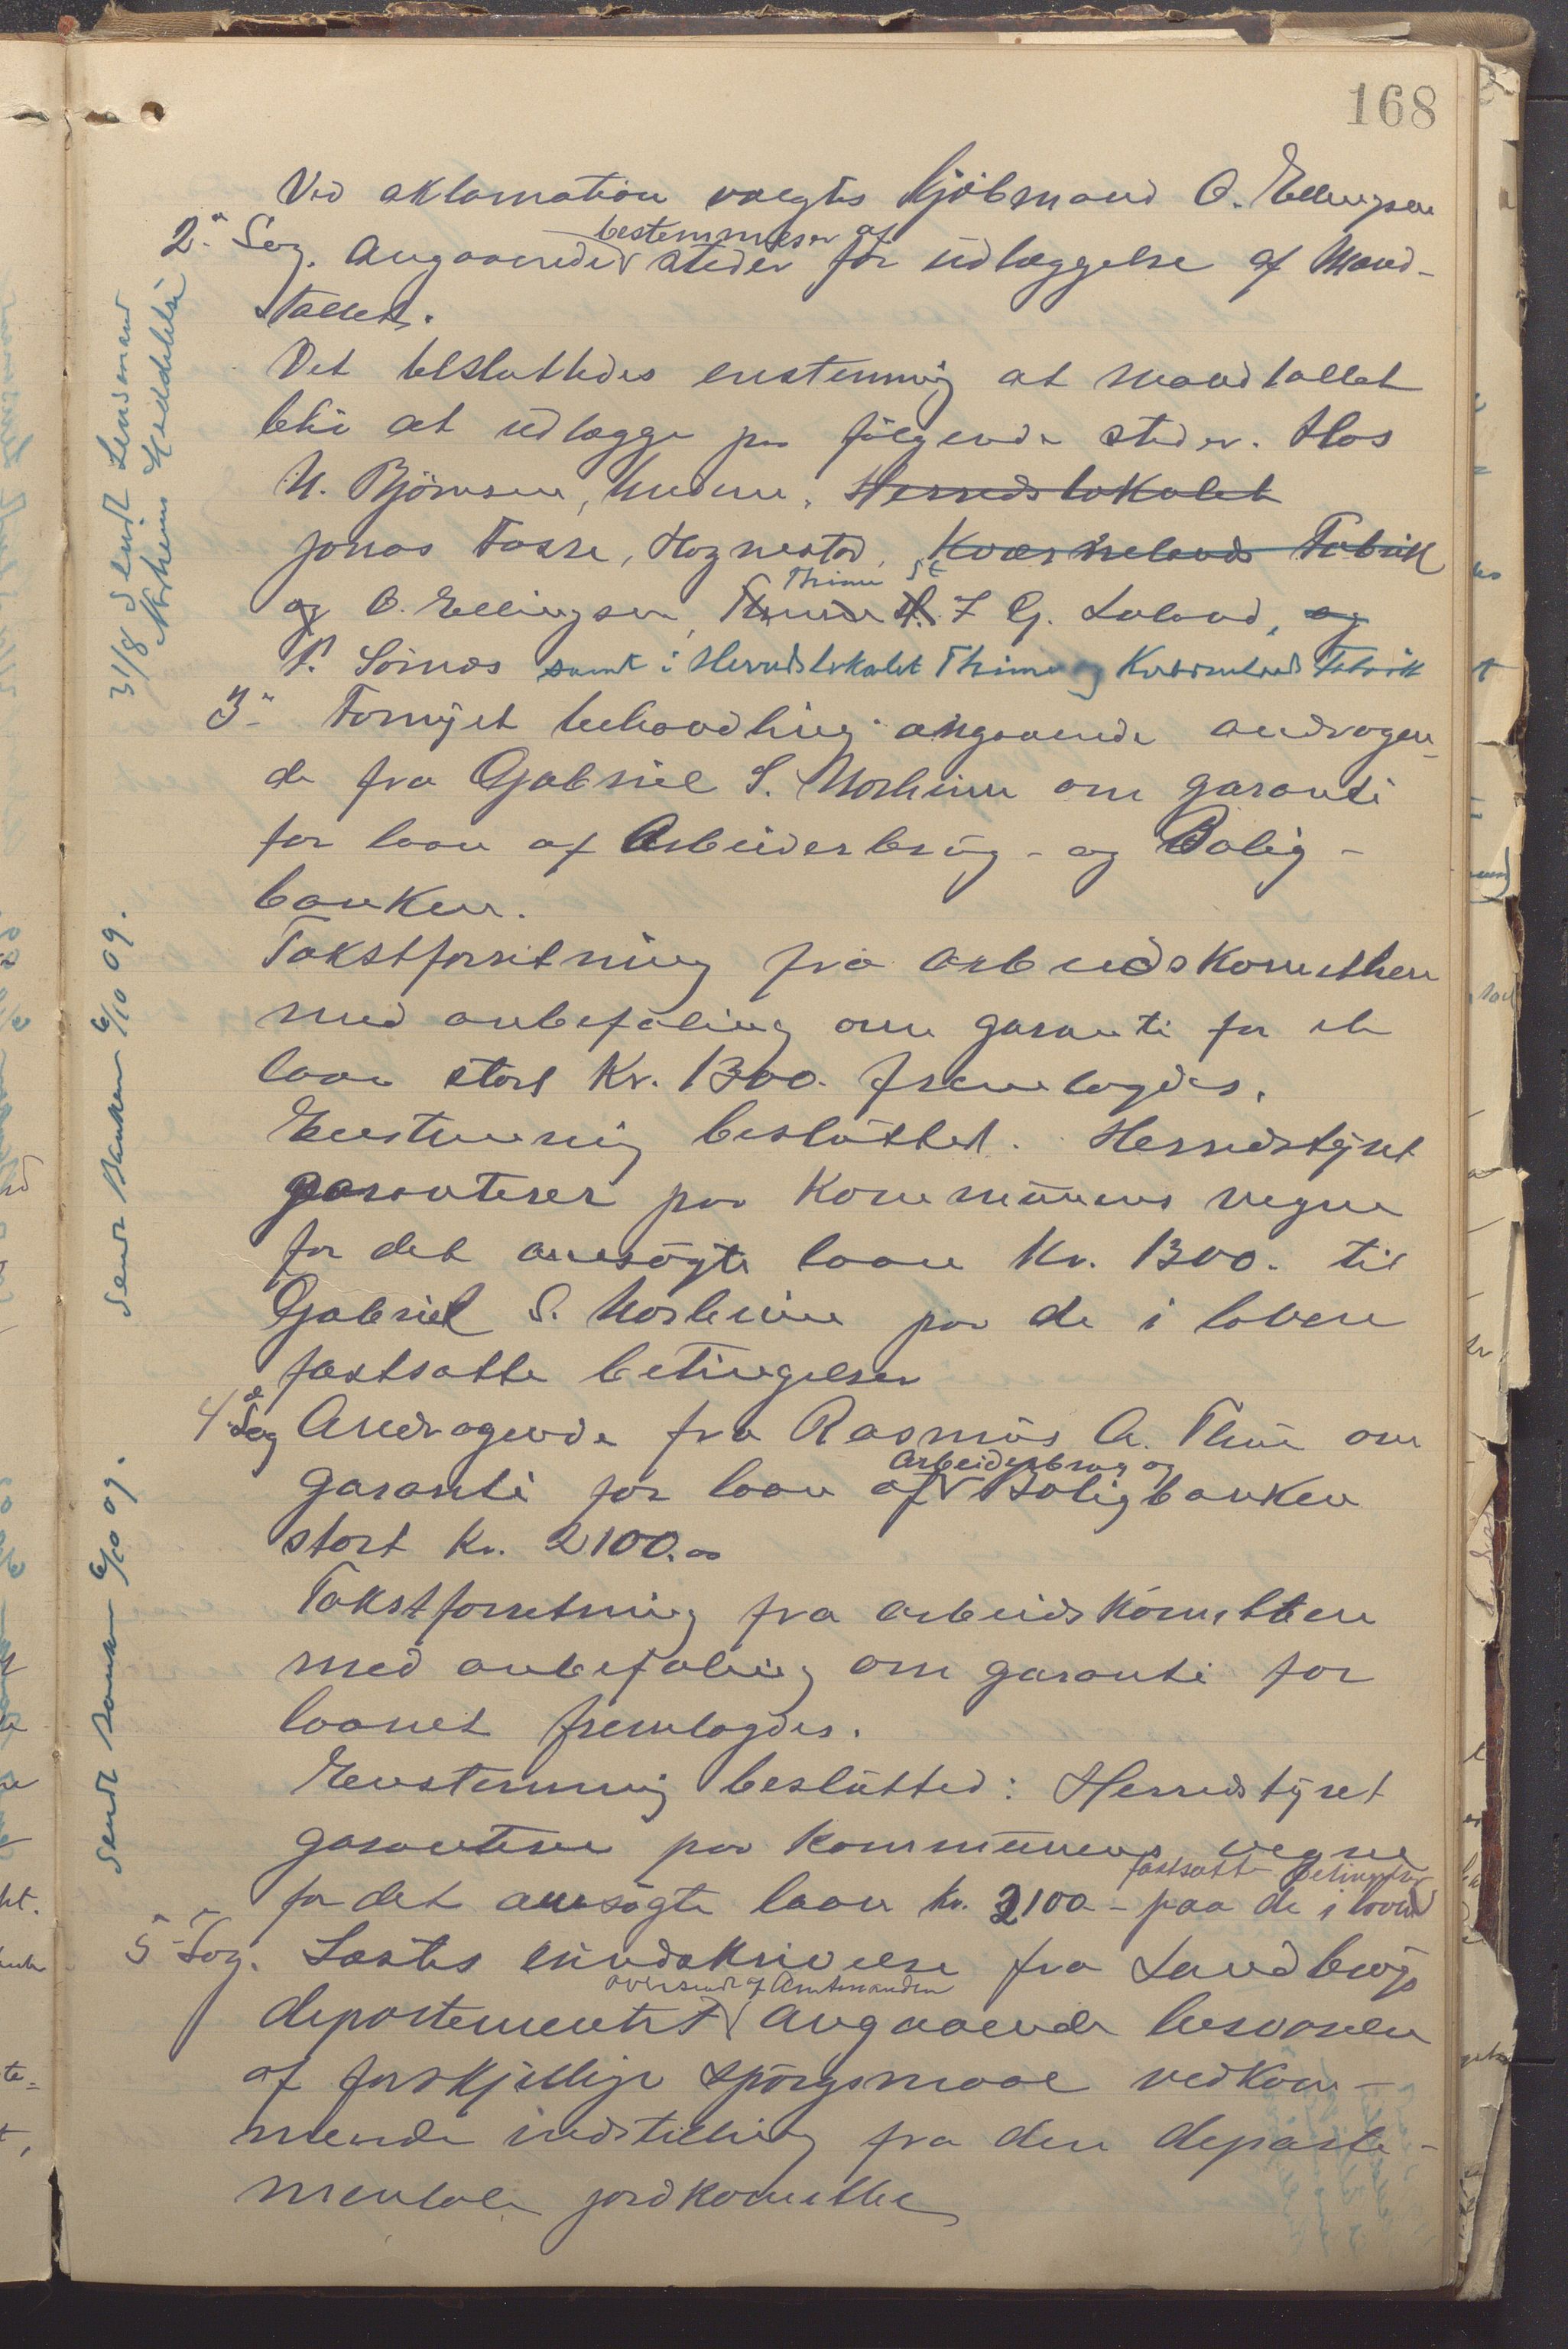 168
Ved aklamation valgtes Kjöbmand O. Ellingsen
2den Sag. Angaaende bestemmelser af steder for udlæggelse af Mand-
tallet.
Det besluttedes enstemmig at mandtallet
bli at udlægge paa følgende steder. Hos
N. Björnsen, Undem, Herredslokalet
Jonas Fosse, Hognestad, Kværnelands Fabrik
og O. Ellingsen, Thime St. Thime St F G. Laland, og
P. Sörnes samt i Herredslokalet Thime og Kværnelands Fabrik
31/8 Sendt Lensmand
Norheim Meddelelse
3- Fornyet behandling angaaende andragen-
de fra Gabriel S. Norheim om garanti
for laan af Arbeiderbrug- og Bolig-
banken.
Takstforretning fra arbeidskomitheen
med anbefaling om garanti for et
laan stort Kr. 1300. fremlagdes.
Enstemmig besluttet. Herredstyret
garanterer paa Kommunens vegne
for det ansögte laan Kr. 1300. til
Gabriel S. Norheim paa de i loven
fastsatte betingelser
Sendt Banken 6/10 09.
4de Sag Andragende fra Rasmus A. Thu om
garanti for laan af Arbeiderbrug og Boligbanken
stort Kr. 2100.00
Takstforretning fra arbeidskomitteen
med anbefaling om garanti for
laanet fremlagdes.
Enstemmig beslutted: Herredstyret
garanterer paa Kommunens vegne
for det ansögte laan kr. 2100 - paa de i loven fastsatte betingelser
Sendt Banken 6/10 09.
5- Sag. Læstes rundskrivelse fra Landbrugs
departementet oversendt af Amtmanden angaaende besvarelse
af forskjellige spörgsmaal vedkom-
mende indstilling fra den departe-
mentale jordkomitte